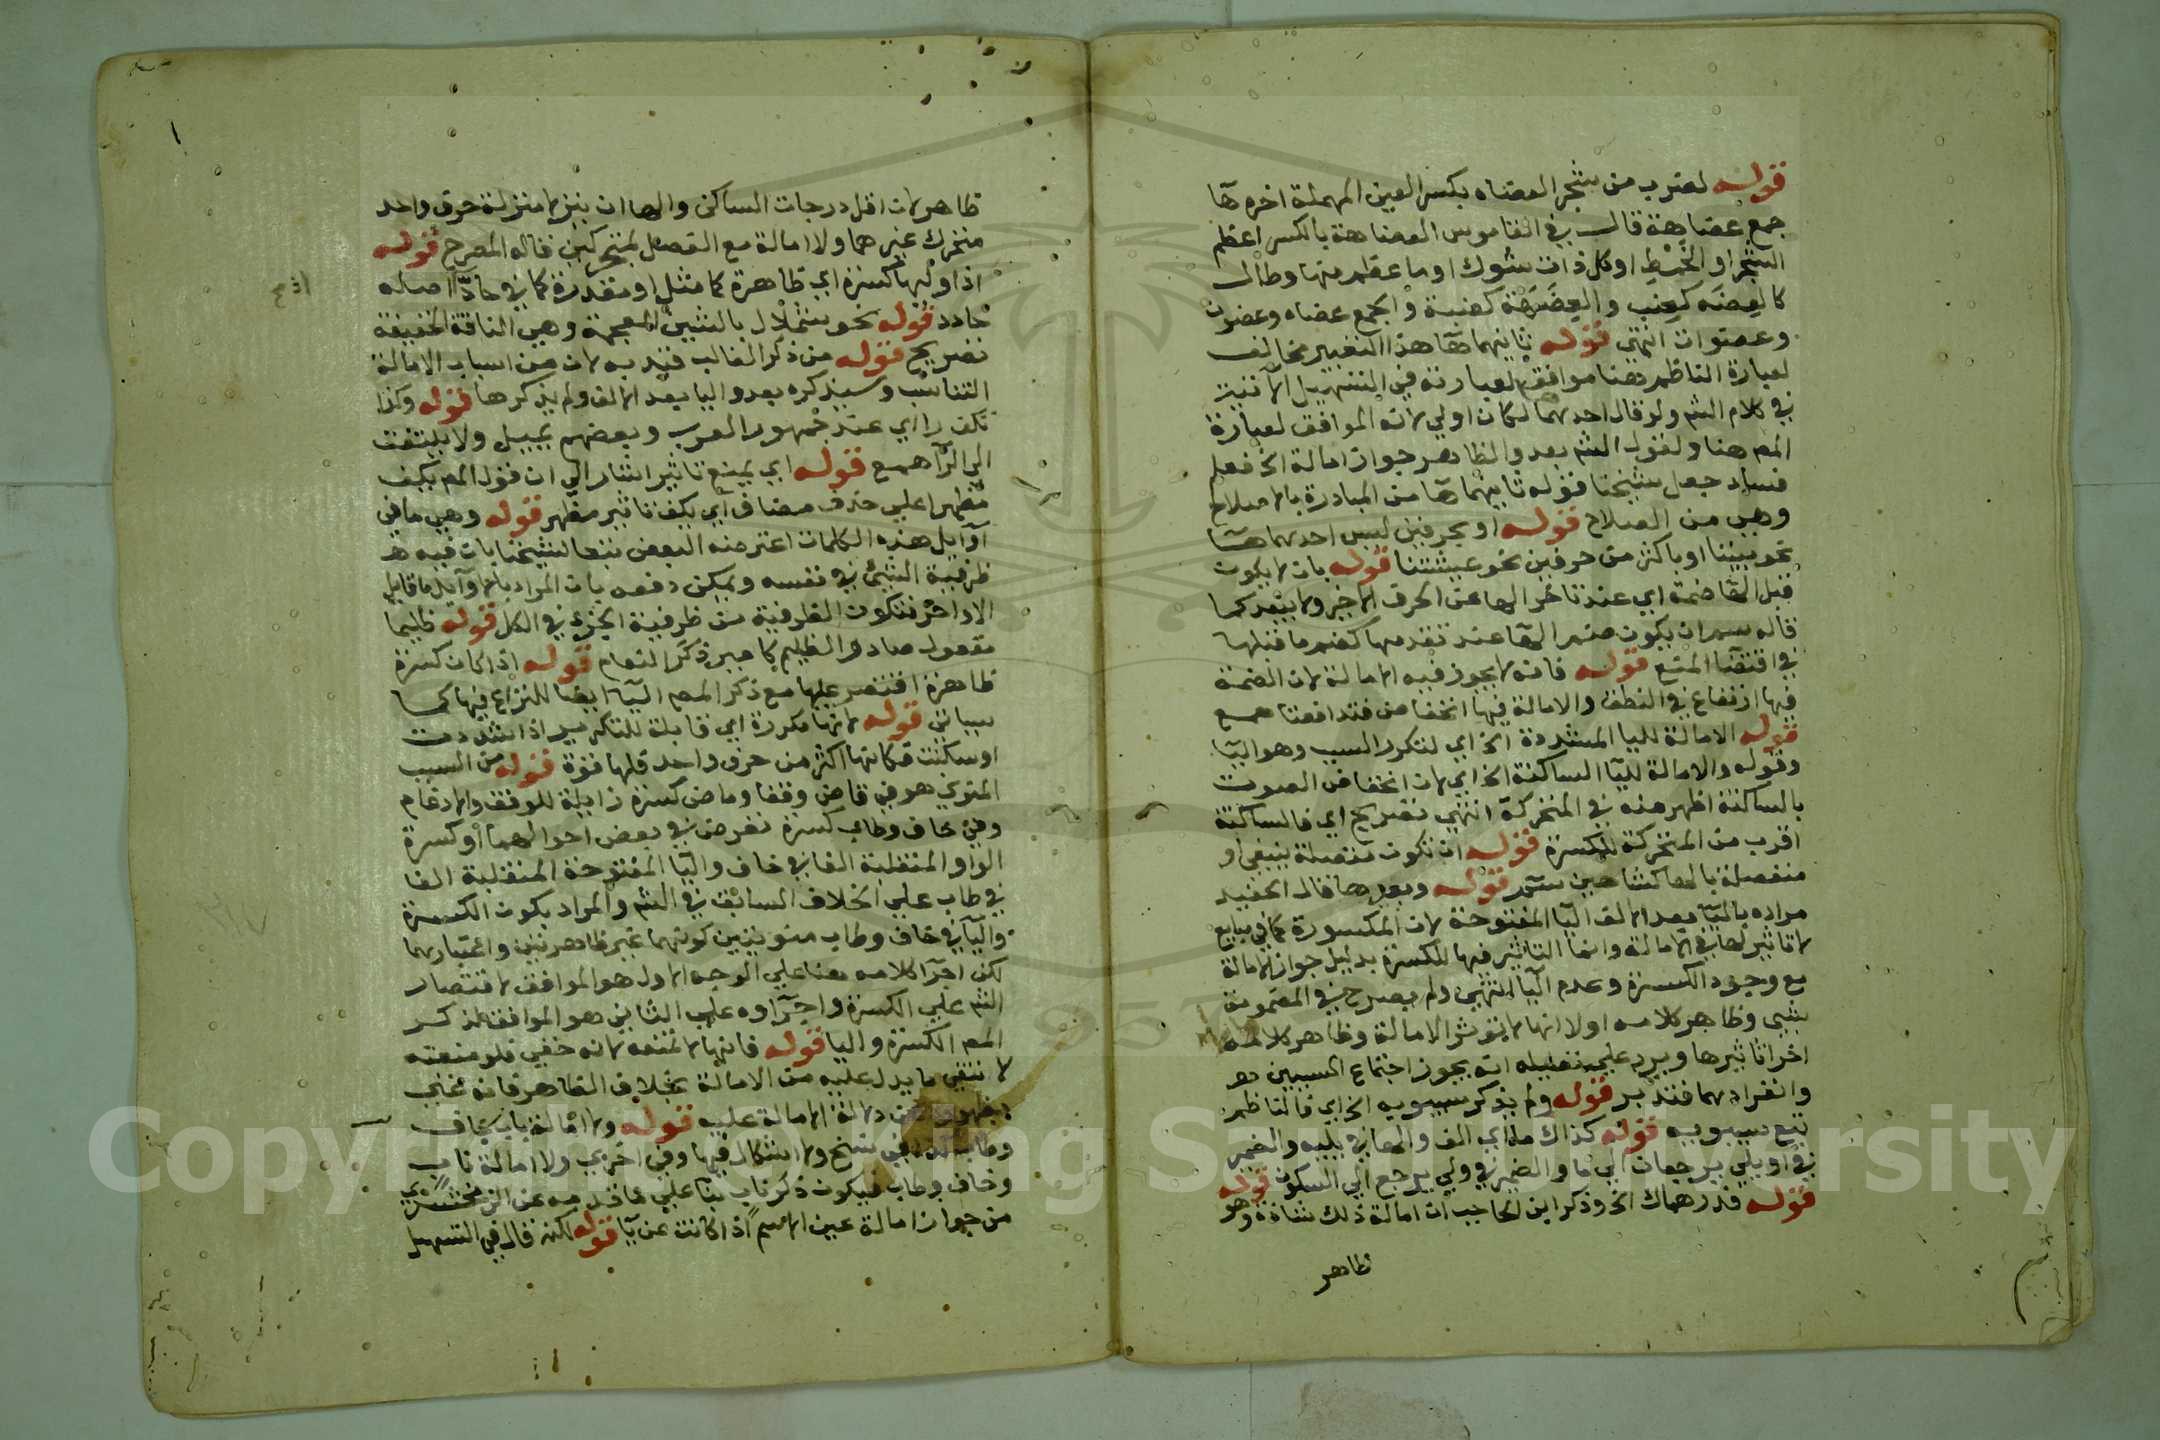 قوله لضرب من شجر العضاه بكسر العين المهملة اخره هآ
جمع عضاهة قال في القاموس العضاهة بالكسر اعظم
الشجر او الخمط او كل ذات شوك او ما عظم منها وطال
كالعضه كعنب والعضهة كعنبة والجمع عضاه وعضون
وعضوات انتهى قوله ثانيهما هآ هذا التعبير مخالف
لعبارة الناظم هنا موافق لعبارته في التسهيل الآتية
في كلام الشم ولو قال احدهما لكان اولي لانه الموافق لعبارة
المم هنا ولقول الشم بعد والظاهر جواز امالة الخ فعلم
فساد جعل شيخنا قوله ثانيهما هآ من المبادرة بالاصلاح
وهي من الصلاح قوله او بحرفين ليس احدهما هآ
نحو بيننا او باكثر من حرفين نحو عيشتنا قوله بان لا يكون
قبل الهآ ضمة اي عند تاخر الها عن الحرف الاخير ولا يبعد كما
قاله سم ان يكون ضم الهآ عند تقدمها كضم ما قبلها
في اقتضآ المنع قوله فانه لا يجوز فيه الامالة لان الضمة
فيها ارتفاع في النطق والامالة فيها انخفاض فتدافعا همع
قوله الامالة لليا المشددة الخ اي لتكرر السبب وهو اليآ
وقوله والامالة لليآ الساكنة الخ اي لان انخفاض الصوت
بالساكنة اظهر منه في المتحركة انتهى تصريح اي فالساكنة
اقرب من المتحركة للكسرة قوله ان تكون متصلة ينبغي او
منفصلة بالها كشاهين سم قوله وبعدها قال الحفيد
مراده باليآ بعد الالف اليآ المفتوحة لان المكسورة كما في مبايع
لا تاثير لها في الامالة وانما التاثير فيها للكسرة بدليل جواز الامالة
مع وجود الكسرة وعدم اليآ انتهى ولم يصرح في المضمومة
بشي وظاهر كلامه اولا انها لا تؤثر الامالة وظاهر كلامه
اخرا تاثيرها ويرد علي تعليله انه يجوز اجتماع السببين
وانفرادهما فتدبر قوله ولم يذكر سيبويه الخ اي فالناظم
تبع سيبويه قوله كذاك ما اي الف والها في يليه والضمير
في او يلي يرجعان الي ما والضمير في ولي يرجع الي السكون قوله
قوله فدرهماك الخ وذكر ابن الحاجب ان امالة ذلك شاذة وهو
ظاهر
ظاهر لان اقل درجات الساكن والها ان ينزلا منزلة حرف واحد
متحرك غيرهما ولا امالة مع الفصل بمتحركين قاله المصرح قوله
اذا وليها كسرة اي ظاهرة كما مثل او مقدرة كما في حادّ اصله
حادد قوله نحو شملال بالشين المعجمة وهي الناقة الخفيفة
تصريح قوله من ذكر الغالب قيد به لان من اسباب الامالة
التناسب وسيذكره بعد واليا بعد الالف ولم يذكرها قوله وكذا
تكف را اي عند جمهور العرب وبعضهم يميل ولا يلتفت
الي الرآ همع قوله اي يمنع تاثير اشار الي ان قول المم يكف
مظهرا علي حذف مضاف اي يكف تاثير مظهر قوله وهي ما في
آوآيل هذه الكلمات اعترضه البعض تبعا لشيخنا بان فيه
ظرفية الشئ في نفسه ويمكن دفعه بان المراد بالاوآيل ما قابل
الاواخر فتكون الظرفية من ظرفية الجزء في الكل قوله ظليما
مفعول صاد والظليم كامير ذكر النعام قوله اذا كان كسرة
ظاهرة اقتصر عليها مع ذكر المم اليآ ايضا للنزاع فيها كما
سياتي قوله لانها مكررة اي قابلة للتكرير اذا شددت
او سكنت فكانها اكثر من حرف واحد فلها قوة قوله من السبب
المنوي هو في قاض وقفا وماض كسرة زايلة للوقف والادغام
وفي خاف وطاب كسرة تعرض في بعض احوالهما أو كسرة
الواو المنقلبة الفا في خاف واليآ المفتوحة المنقلبة الفا
في طاب علي الخلاف السابق في الشم والمراد بكون الكسرة
واليآ في خاف وطاب منويين كونهما غير ظاهرتين واعتبارهما
لكن اجرآ كلامه هنا علي الوجه الاول هو الموافق لاقتصار
الشم علي الكسرة واجرآوه علي الثاني هو الموافق لذكر
المم الكسرة واليا قوله فانها لا تمنعه لانه خفي فلو منعته
لانتفي ما يدل عليه من الامالة بخلاف الظاهر فانه غني
بظهوره عن دلالة الامالة عليه قوله ولا امالة باب خاف
وطاب كذا في نسخ ولا اشكال فيها وفي اخري ولا امالة ناب
وخاف وطاب فيكون ذكر ناب بنآ علي ما قدمه عن الزمخشري
من جواز امالة عين الاسم اذا كانت عن يآ قوله لكنه قال في التسهيل
Copyright © King Saud University
1957